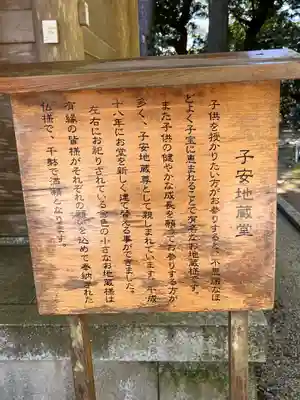 子安地蔵堂
子供を授かりたい方がお参りすると、不思議なほ
どよく子宝に恵まれることで有名なお地蔵様です。
また子供の健やかな成長を願ってお参りする方が
多く、子安地蔵尊として親しまれています。平成
十八年にお堂を新しく建て替える事ができました。
左右にお祀りされている金色の小さなお地蔵様は
有縁の皆様がそれぞれの願いを込めて奉納された
仏様で、千躰で満願となります。